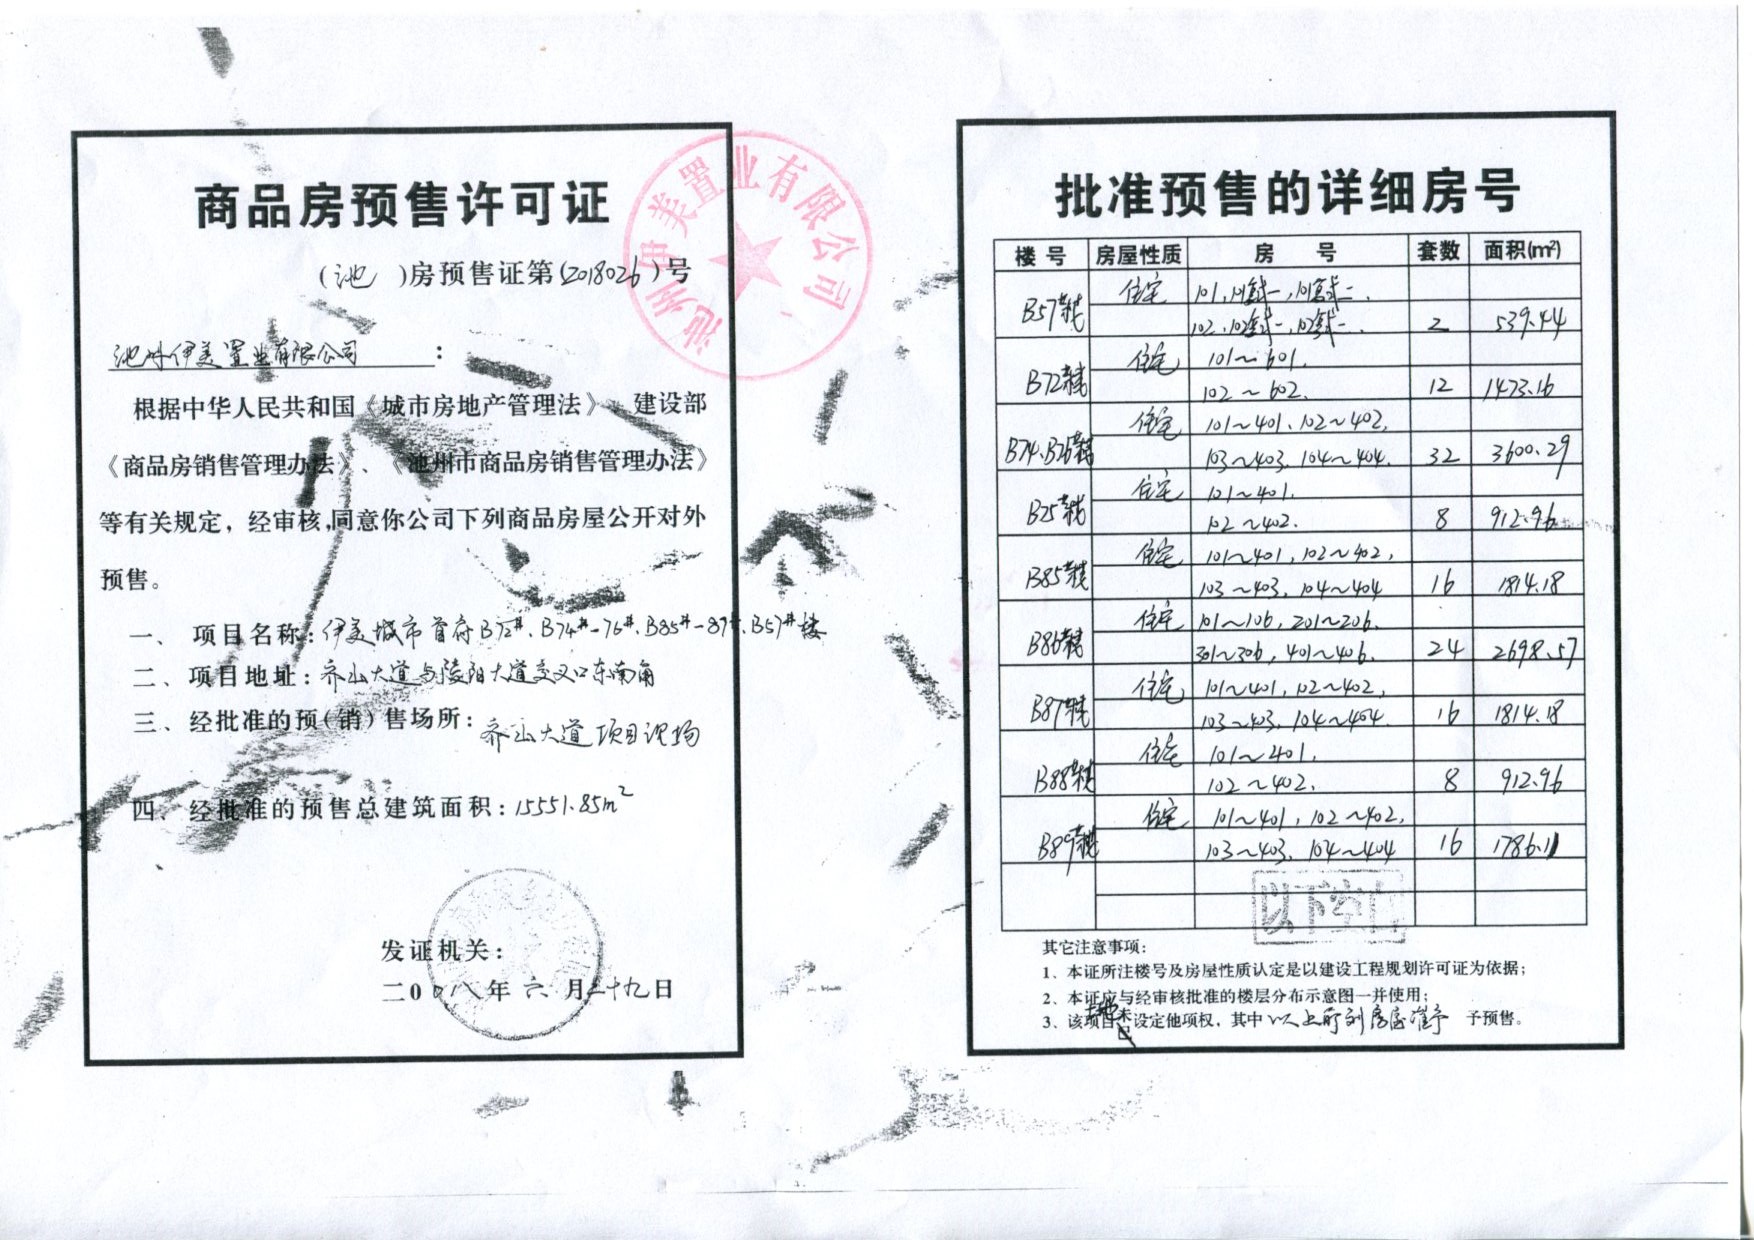 商品房预售许可证
(池)房预售证第(2018026)号
池州伊美置业有限公司:
根据中华人民共和国《城市房地产管理法》、建设部
《商品房销售管理办法》、《池州市商品房销售管理办法》
等有关规定，经审核,同意你公司下列商品房屋公开对外
预售。
一、项目名称:伊美城市首府B72#、B74#-76#、B85#-89#、B57#楼
二、项目地址:齐山大道与陵阳大道交叉口东南角
三、经批准的预(销)售场所:齐山大道项目现场
四、经批准的预售总建筑面积:15551.85m²
发证机关:
二0一八年六月二十九日
池州伊美置业有限公司
批准预售的详细房号
楼号 房屋性质 房号 套数 面积(m²)
B57幢 住宅 101,
102, 2 539.44
B72幢 住宅 101~601.
102~602. 12 1473.16
住宅 101~401、102~402,
103~403. 104~404. 32 3600.29
住宅 101~401.
102~402. 8 912.96
B85幢 住宅 101~401, 102~402,
103~403, 104~404 16 1814.18
B86幢 住宅 101~106, 201~206.
301~306, 401~406. 24 2698.57
B87幢 住宅 101~401, 102~402,
103~403, 104~404. 16 1814.18
B88幢 住宅 101~401.
102~402. 8 912.96
B89幢 住宅 101~401, 102~402,
103~403, 104~404 16 1786.11
以下空白
其它注意事项:
1、本证所注楼号及房屋性质认定是以建设工程规划许可证为依据;
2、本证应与经审核批准的楼层分布示意图一并使用;
3、该项目土地未设定他项权，其中以上所列房屋准予 予预售。